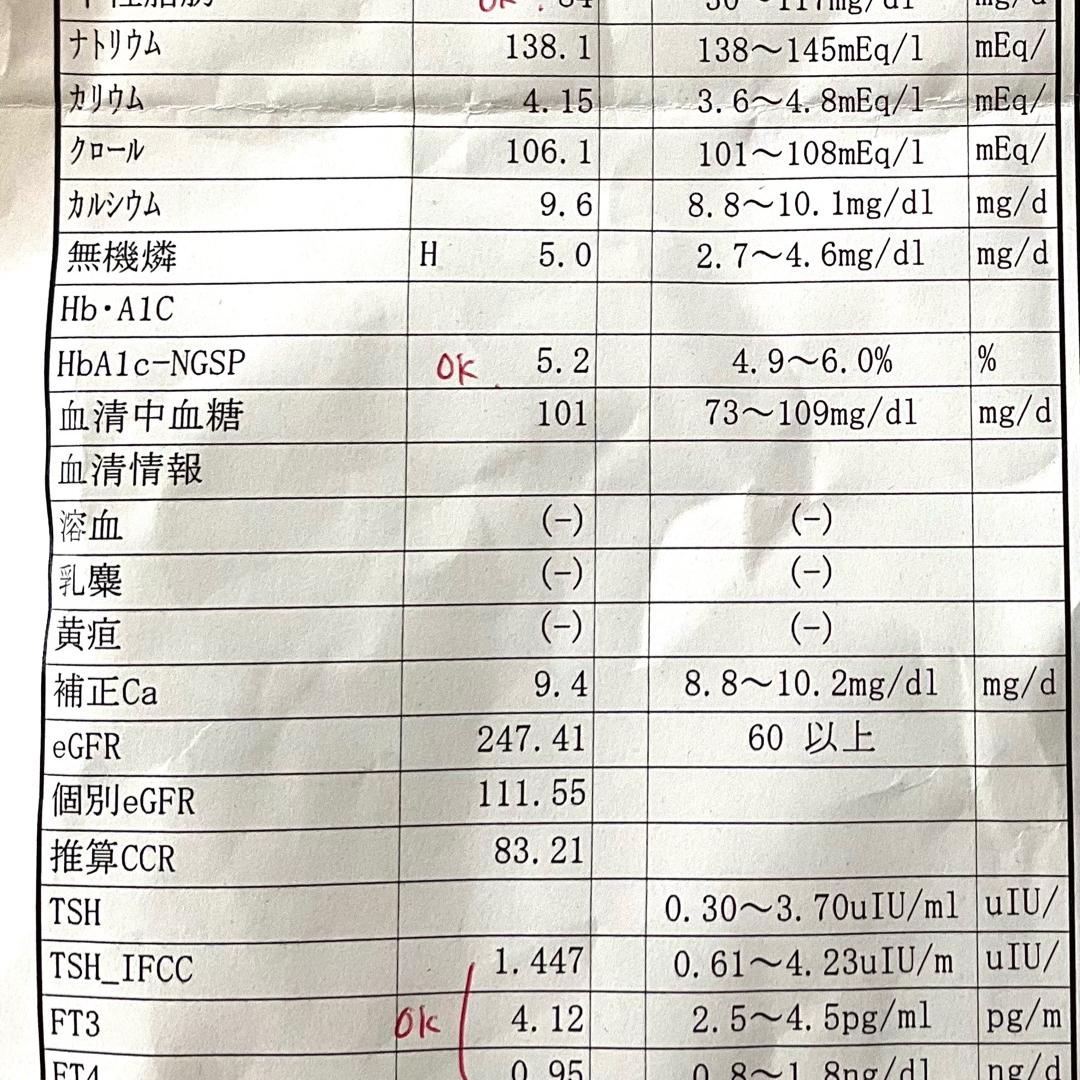 OK. 84 30～117mg/dl mg/d
ナトリウム 138.1 138～145mEq/l mEq/
カリウム 4.15 3.6～4.8mEq/l mEq/
クロール 106.1 101～108mEq/l mEq/
カルシウム 9.6 8.8～10.1mg/dl mg/d
無機燐 H 5.0 2.7～4.6mg/dl mg/d
Hb・A1C
HbA1c-NGSP OK. 5.2 4.9～6.0% %
血清中血糖 101 73～109mg/dl mg/d
血清情報
溶血 (-) (-)
乳麋 (-) (-)
黄疸 (-) (-)
補正Ca 9.4 8.8～10.2mg/dl mg/d
eGFR 247.41 60 以上
個別eGFR 111.55
推算CCR 83.21
TSH 0.30～3.70uIU/ml uIU/
TSH_IFCC 1.447 0.61～4.23uIU/m uIU/
FT3 OK 4.12 2.5～4.5pg/ml pg/m
FT4 0.95 0.8～1.8ng/dl ng/d